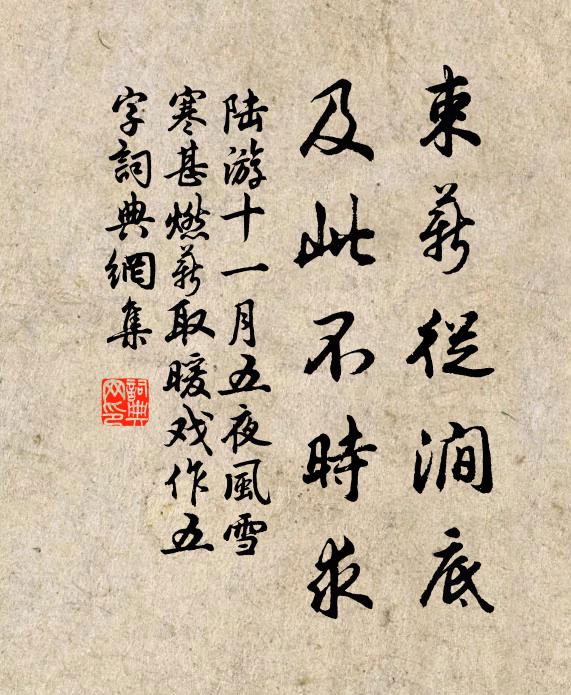 束薪從澗底
及此不時求
陆游十一月五夜風雪
寒甚燃薪取暖戏作五
字詞典網集
詞典
网印